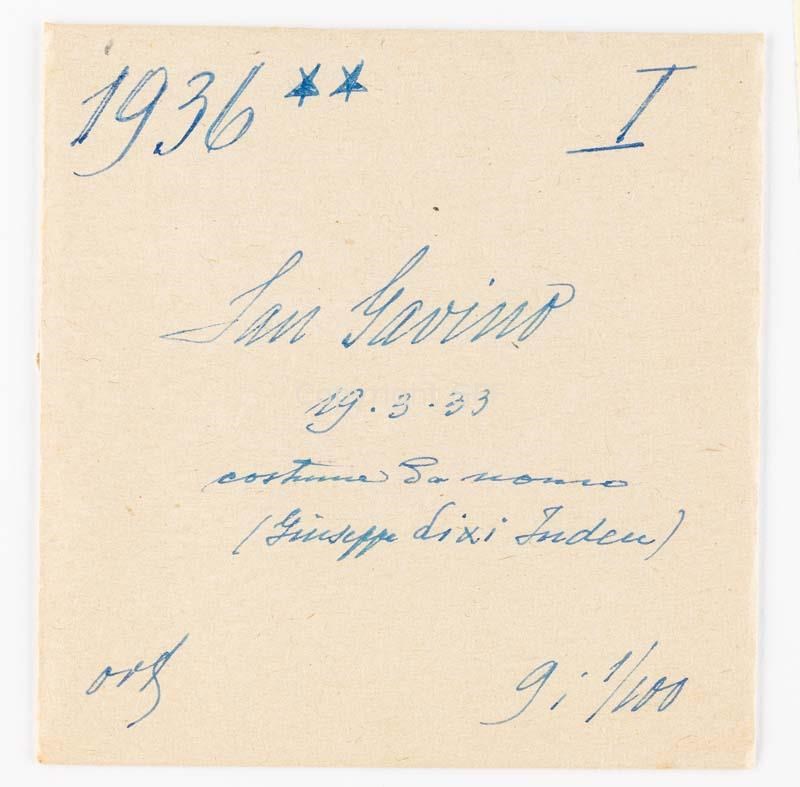 1936 ** I
San Gavino
19.3.33
costume da uomo
(Giuseppe Lixi Indeu)
ort
9; 1/100